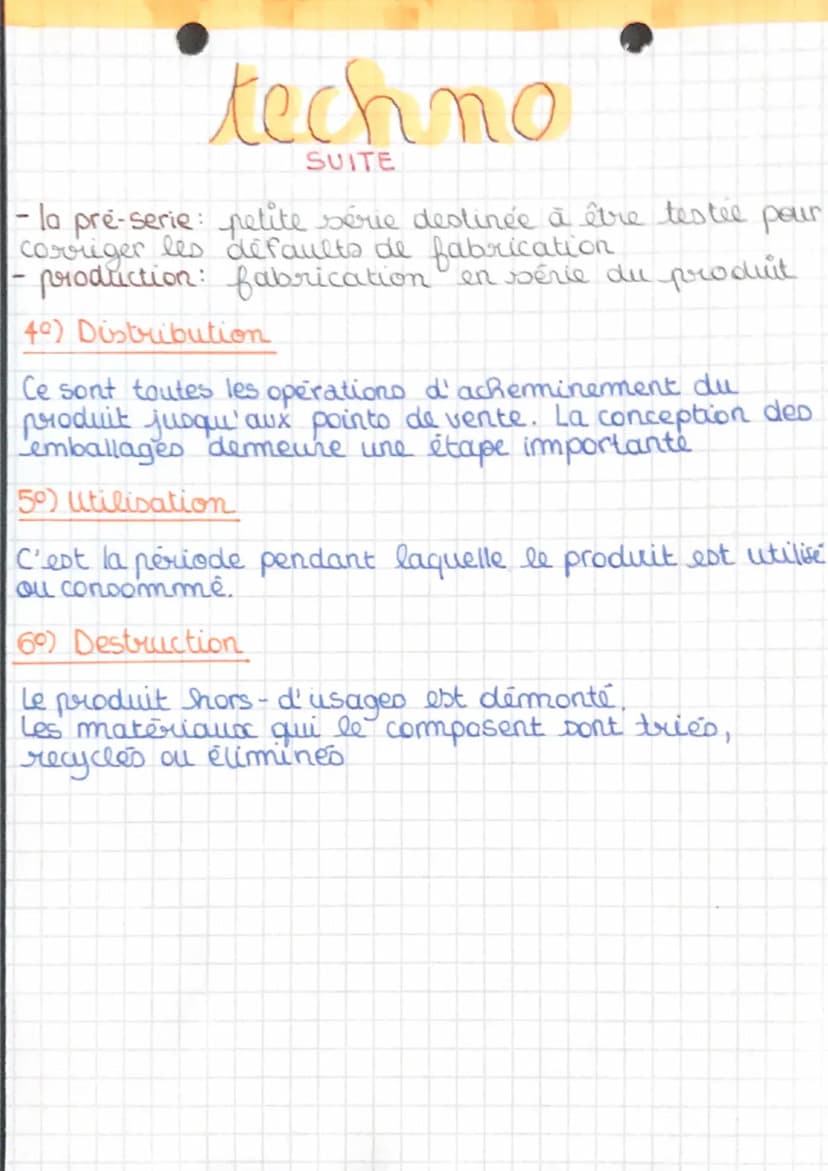 techno
SUITE
- la pré-serie: petite série destinée à être testée pour
corriger les défaults de fabrication
- production: fabrication en série du produit
4°) Distribution
Ce sont toutes les opérations d'acheminement du
produit jusqu'aux points de vente. La conception des
emballages demeure une étape importante
5°) Utilisation
C'est la période pendant laquelle le produit est utilisé
ou consommé.
6°) Destruction
Le produit hors-d'usages est démonté.
Les matériaux qui le composent sont triés,
recyclés ou éliminés